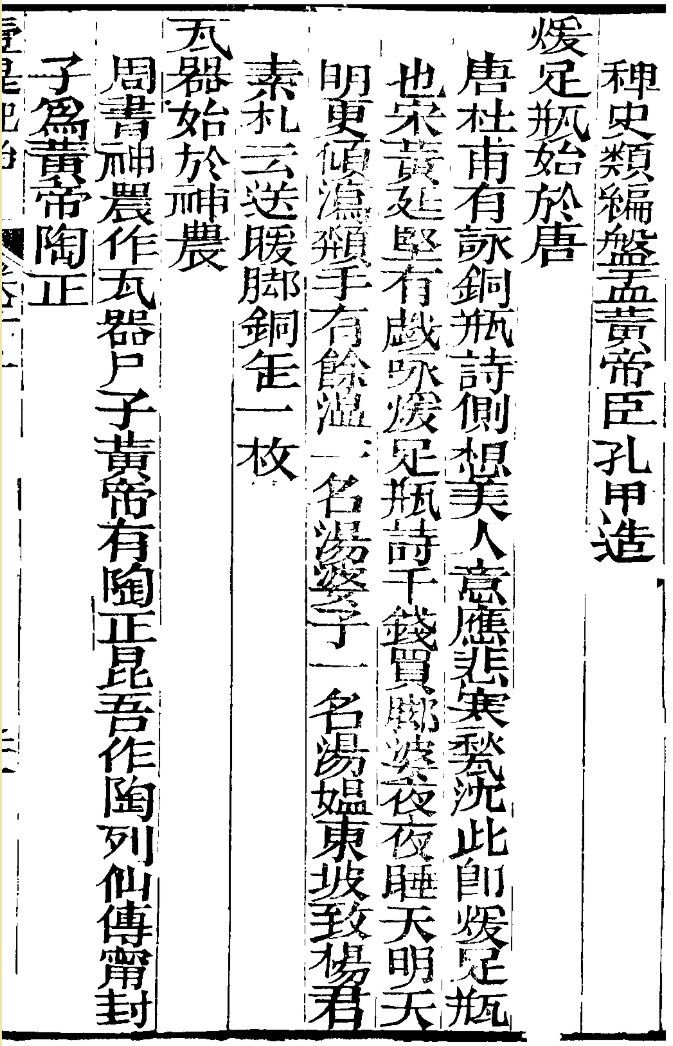 稗史類編盤盂黃帝臣孔甲造
煖足瓶始於唐
唐杜甫有詠銅瓶詩側想美人意應悲寒甃沈此卽煖足瓶
也宋黃廷堅有戲咏煖足瓶詩千錢買脚婆夜夜睡天明天
明更傾瀉頮手有餘溫一名湯婆子一名湯媪東坡致楊君
素札云送暖脚銅缶一枚
瓦器始於神農
周書神農作瓦器尸子黃帝有陶正昆吾作陶列仙傳甯封
子爲黃帝陶正